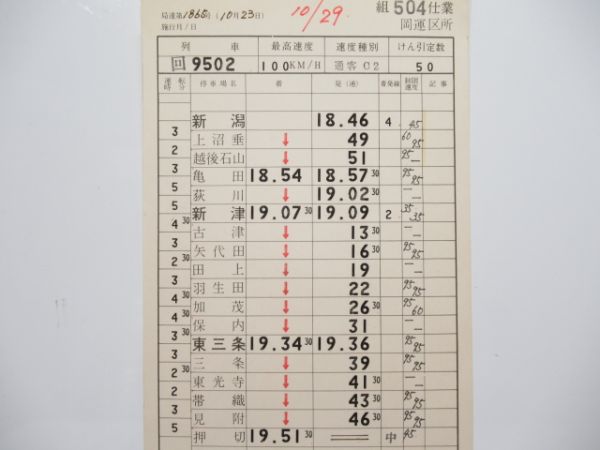 組 504 仕業
局達第1865号 (10月23日) 10/29
施行月/日 岡運区所
列車 最高速度 速度種別 けん引定数
回 9502 100KM/H 通客C2 50
運転時分 停車場名 着 発(通) 着発線 制限速度 記事
新潟 18.46 4 45
3
上沼垂 ↓ 49 60 95
2
越後石山 ↓ 51 95 —
3
亀田 18.54 18.57 30 95 95
5
荻川 ↓ 19.02 30 — —
5
新津 19.07 30 19.09 2 35 35
4 30
古津 ↓ 13 30 — —
3
矢代田 ↓ 16 30 95 95
2 30
田上 ↓ 19 — —
3
羽生田 ↓ 22 95 95
4 30
加茂 ↓ 26 30 95 60
4 30
保内 ↓ 31 — —
3 30
東三条 19.34 30 19.36 95 95
3
三条 ↓ 39 95 95
2 30
東光寺 ↓ 41 30 — —
2
帯織 ↓ 43 30 95 95
3
見附 ↓ 46 30 95 95
5
押切 19.51 30 == 中 45